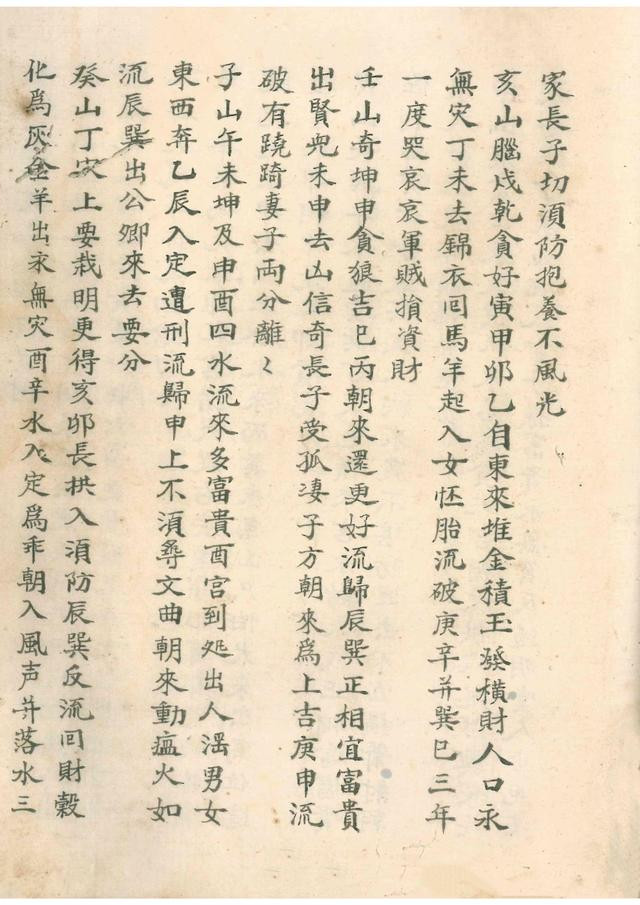 家長子切須防抱養不風光
亥山腦戌乾貪好寅甲卯乙自東來堆金積玉發橫財人口永
無灾丁未去錦衣囘馬羊起入女怌胎流破庚辛并巽巳三年
一度哭哀哀軍賊損資財
壬山奇坤申貪狼吉巳丙朝來還更好流歸辰巽正相宜富貴
出賢兠未申去凶信奇長子受孤凄子方朝來爲上吉庚申流
破有蹺踦妻子両分離〻
子山午未坤及申酉四水流來多富貴酉宮到処出人滛男女
東西奔乙辰入定遭刑流歸申上不須尋文曲朝來動瘟火如
流辰巽出公卿來去要分
癸山丁灾上要栽明更得亥卯長拱入須防辰巽反流囘財穀
化爲灰金羊出永無灾酉辛水入定爲乖朝入風声并落水三